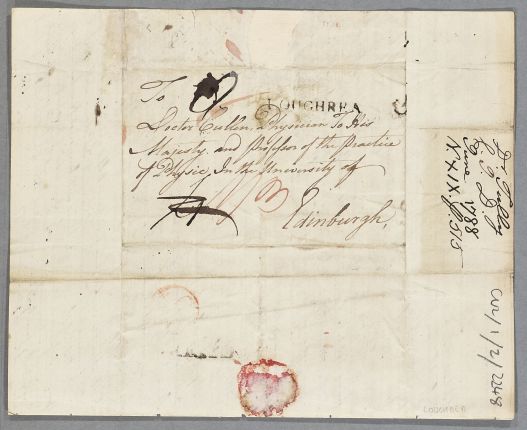 To
LOUGHREA
Doctor Cullen, Physician To His
Majesty, and Professor of the Practice
of Physic, In the University of
Edinburgh,
1/3
Dr Tully
1788
N XIX. p. 515
CUL/1/2/2248
LOUGHREA